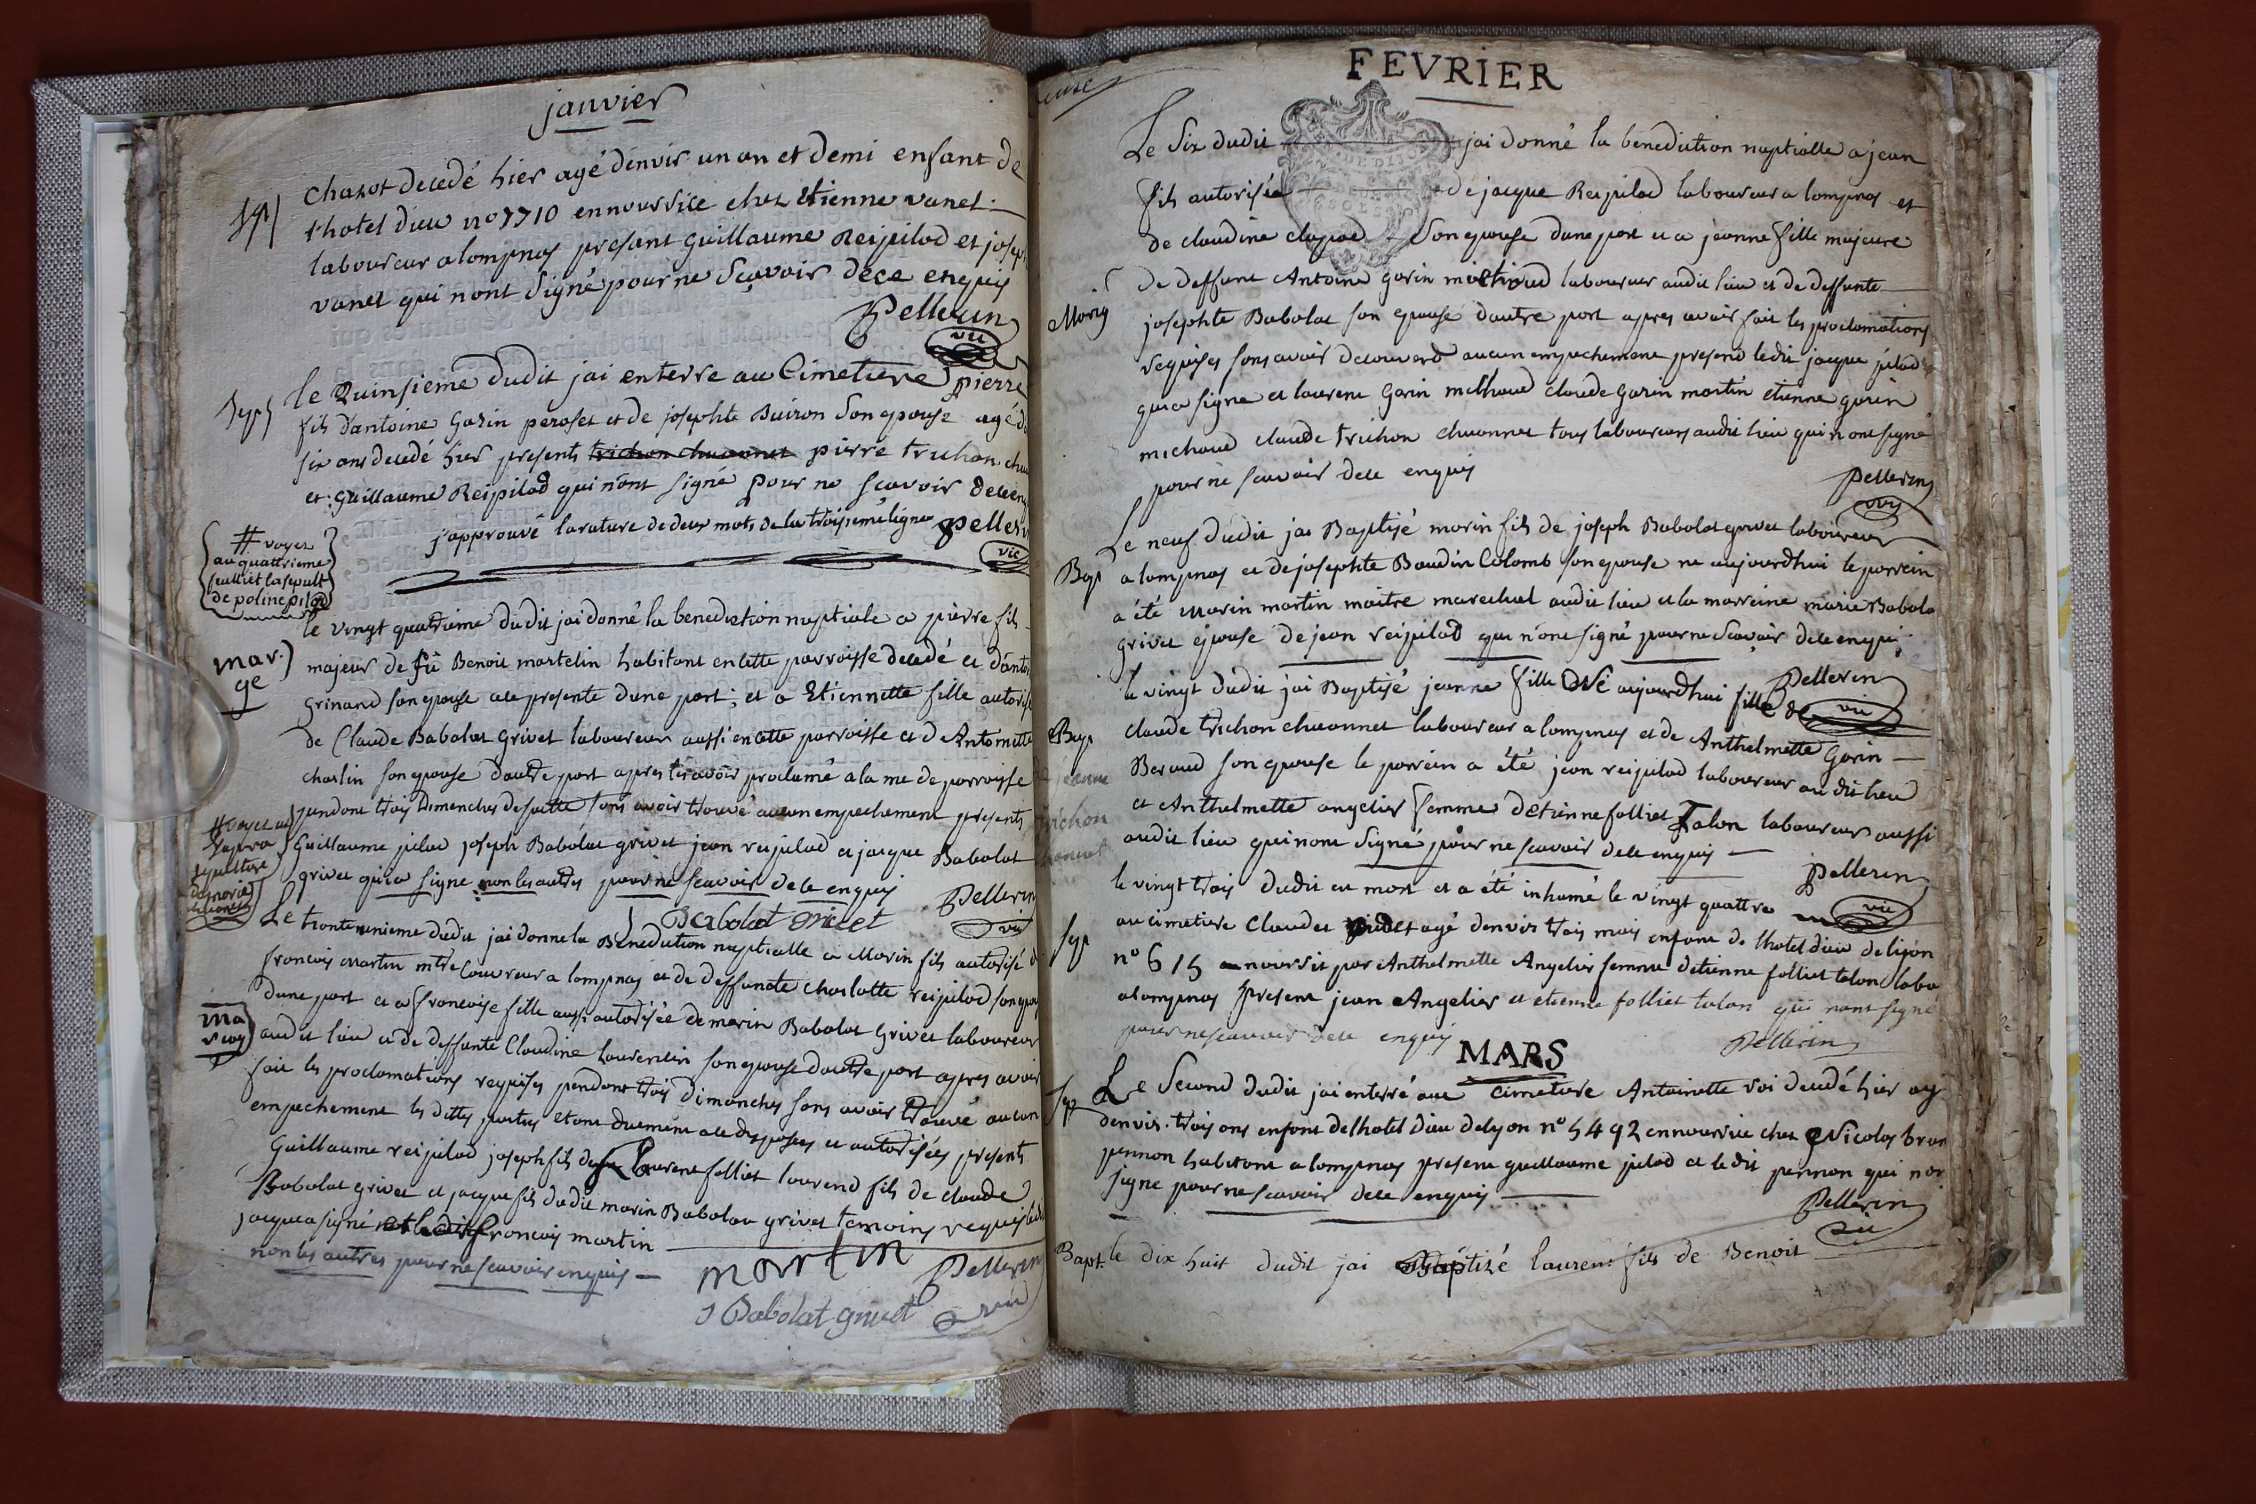 janvier
Sep
chazot decedé hier agé denvir un an et demi enfant de
l'hotel dieu n° 7710 ennourrice chez Etienne vanel
laboureur a lompnas present Guillaume Reipilod et josep
vanel qui nont signé pour ne sçavoir de ce enquis
Pellerin
vic
Sep
le Quinsieme dudit jai enterre au Cimetiere pierre
fils dantoine Garin peroset et de josephte Buiron son epouse agé de
six ans decedé hier presents trichon chuonnet pierre trichon chu
et Guillaume Reipilod qui n'ont signé pour ne scavoir de ce enq
japprouve la rature de deux mots de la troisieme ligne Pellerin
vic
# voyez
au quattrieme
feuillet la sepult
de poline pilod
le vingt quatrieme dudit jai donné la benediction nuptiale a pierre fils
mar.
ge
majeur de fû Benoit martelin habitant en cette parroisse decedé et d'anto
Grinand son epouse ate presente dune part; et a Etiennette fille autoris
de Claude Babolat Grivet laboureur aussi en cette parroisse et d'Antoinette
charlin son epouse dautre part apres avoir proclamé a la me de parroisse
pendant trois dimanches desuitte sans avoir trouvé aucun empechement presents
# voyez cy
Guillaume pilod joseph Babolat grivet jean reipilod et jacque Babolat
sepulture
grivet qui a signe non les autres pour ne scavoir de ce enquis
Pellerin
vic
Babolat grivet
Le trente unieme dudit jai donné la Benediction nuptialle a Marin fils autorisé de
francois martin mtre couvreur a lompnas et de deffuncte charlotte reipilod son epou
dune part et a francoise fille aussi autorisée de marin Babolat Grivet laboureur
ma
riag
audit lieu et de deffunte Claudine laurencin son epouse dautre part apres avoir
fait les proclamations requises pendant trois dimanches sans avoir trouvé aucun
empechement les dittes parties etant duement disposées et autorisées presents
Guillaume reipilod joseph fils de laurent folliet laurend fils de claude
Babolat grivet et jacque fils dudit marin Babolat grivet temoins requis ledit
jacque a signé et ledit francois martin
non les autres pour ne scavoir enquis
martin
Pellerin
vic
J Babolat grivet
FEVRIER
Le Six dudit jai donné la benediction nuptialle a jean
fils autorisée de jacque Reipilod laboureur a lompnas et
de claudine clapod son epouse dune part et a jeanne fille majeure
de deffunt Antoine garin michoud laboureur audit lieu et de deffunte
Mariag
josephte Babolat son epouse dautre part apres avoir fait les proclamations
requises sans avoir decouverd aucun empechement present ledit jacque pilod
qui a signe et laurent Garin michoud claude Garin martin etienne garin
michoud claude trichon chuonnet tous laboureurs audit lieu qui n ont signe
pour ne scavoir de ce enquis
Pellerin
vic
Le neuf dudit jai Baptisé marin fils de joseph Babolat grivet laboureur
Bap
a lompnas et de josephte Baudin Colomb son epouse ne aujourdhui le parrein
a été marin martin maitre marechal audit lieu et la marreine marie Babola
grivet epouse de jean reipilod qui n'ont signé pour ne scavoir de ce enquis
Pellerin
vic
le vingt dudit jai Baptisé jeanne fille Né aujourdhui fille de
Bap
claude trichon chuonnet laboureur a lompnas et de Anthelmette Garin
jeanne
Beraud son epouse le parrein a été jean reipilod laboureur audit lieu
trichon
et Anthelmette angelier femme detienne folliet Talon laboureur aussi
audit lieu qui nont signé pour ne scavoir de ce enquis
Pellerin
vic
le vingt trois dudit est mort et a été inhumé le vingt quattre
Sep
au cimetiere Claudet agé denvir trois mois enfant de lhotel dieu de liyon
n° 615 nourrit par Anthelmette Angelier femme detienne folliet talon labo
a lompnas present jean Angelier et etienne folliet talon qui nont signé
pour ne scavoir de ce enquis
Pellerin
MARS
Sep
Le Second dudit jai enterré au cimetiere Antoinette roi decedé hier ag
denvir trois ans enfant de lhotel Dieu de lyon n° 5492 ennourrice chez Nicolas bron
pennon habitant a lompnas present guillaume pilod et ledit pennon qui non
signe pour ne scavoir de ce enquis
Pellerin
vic
Bapt.
le dix huit dudit jai Baptizé laurent fils de Benoit